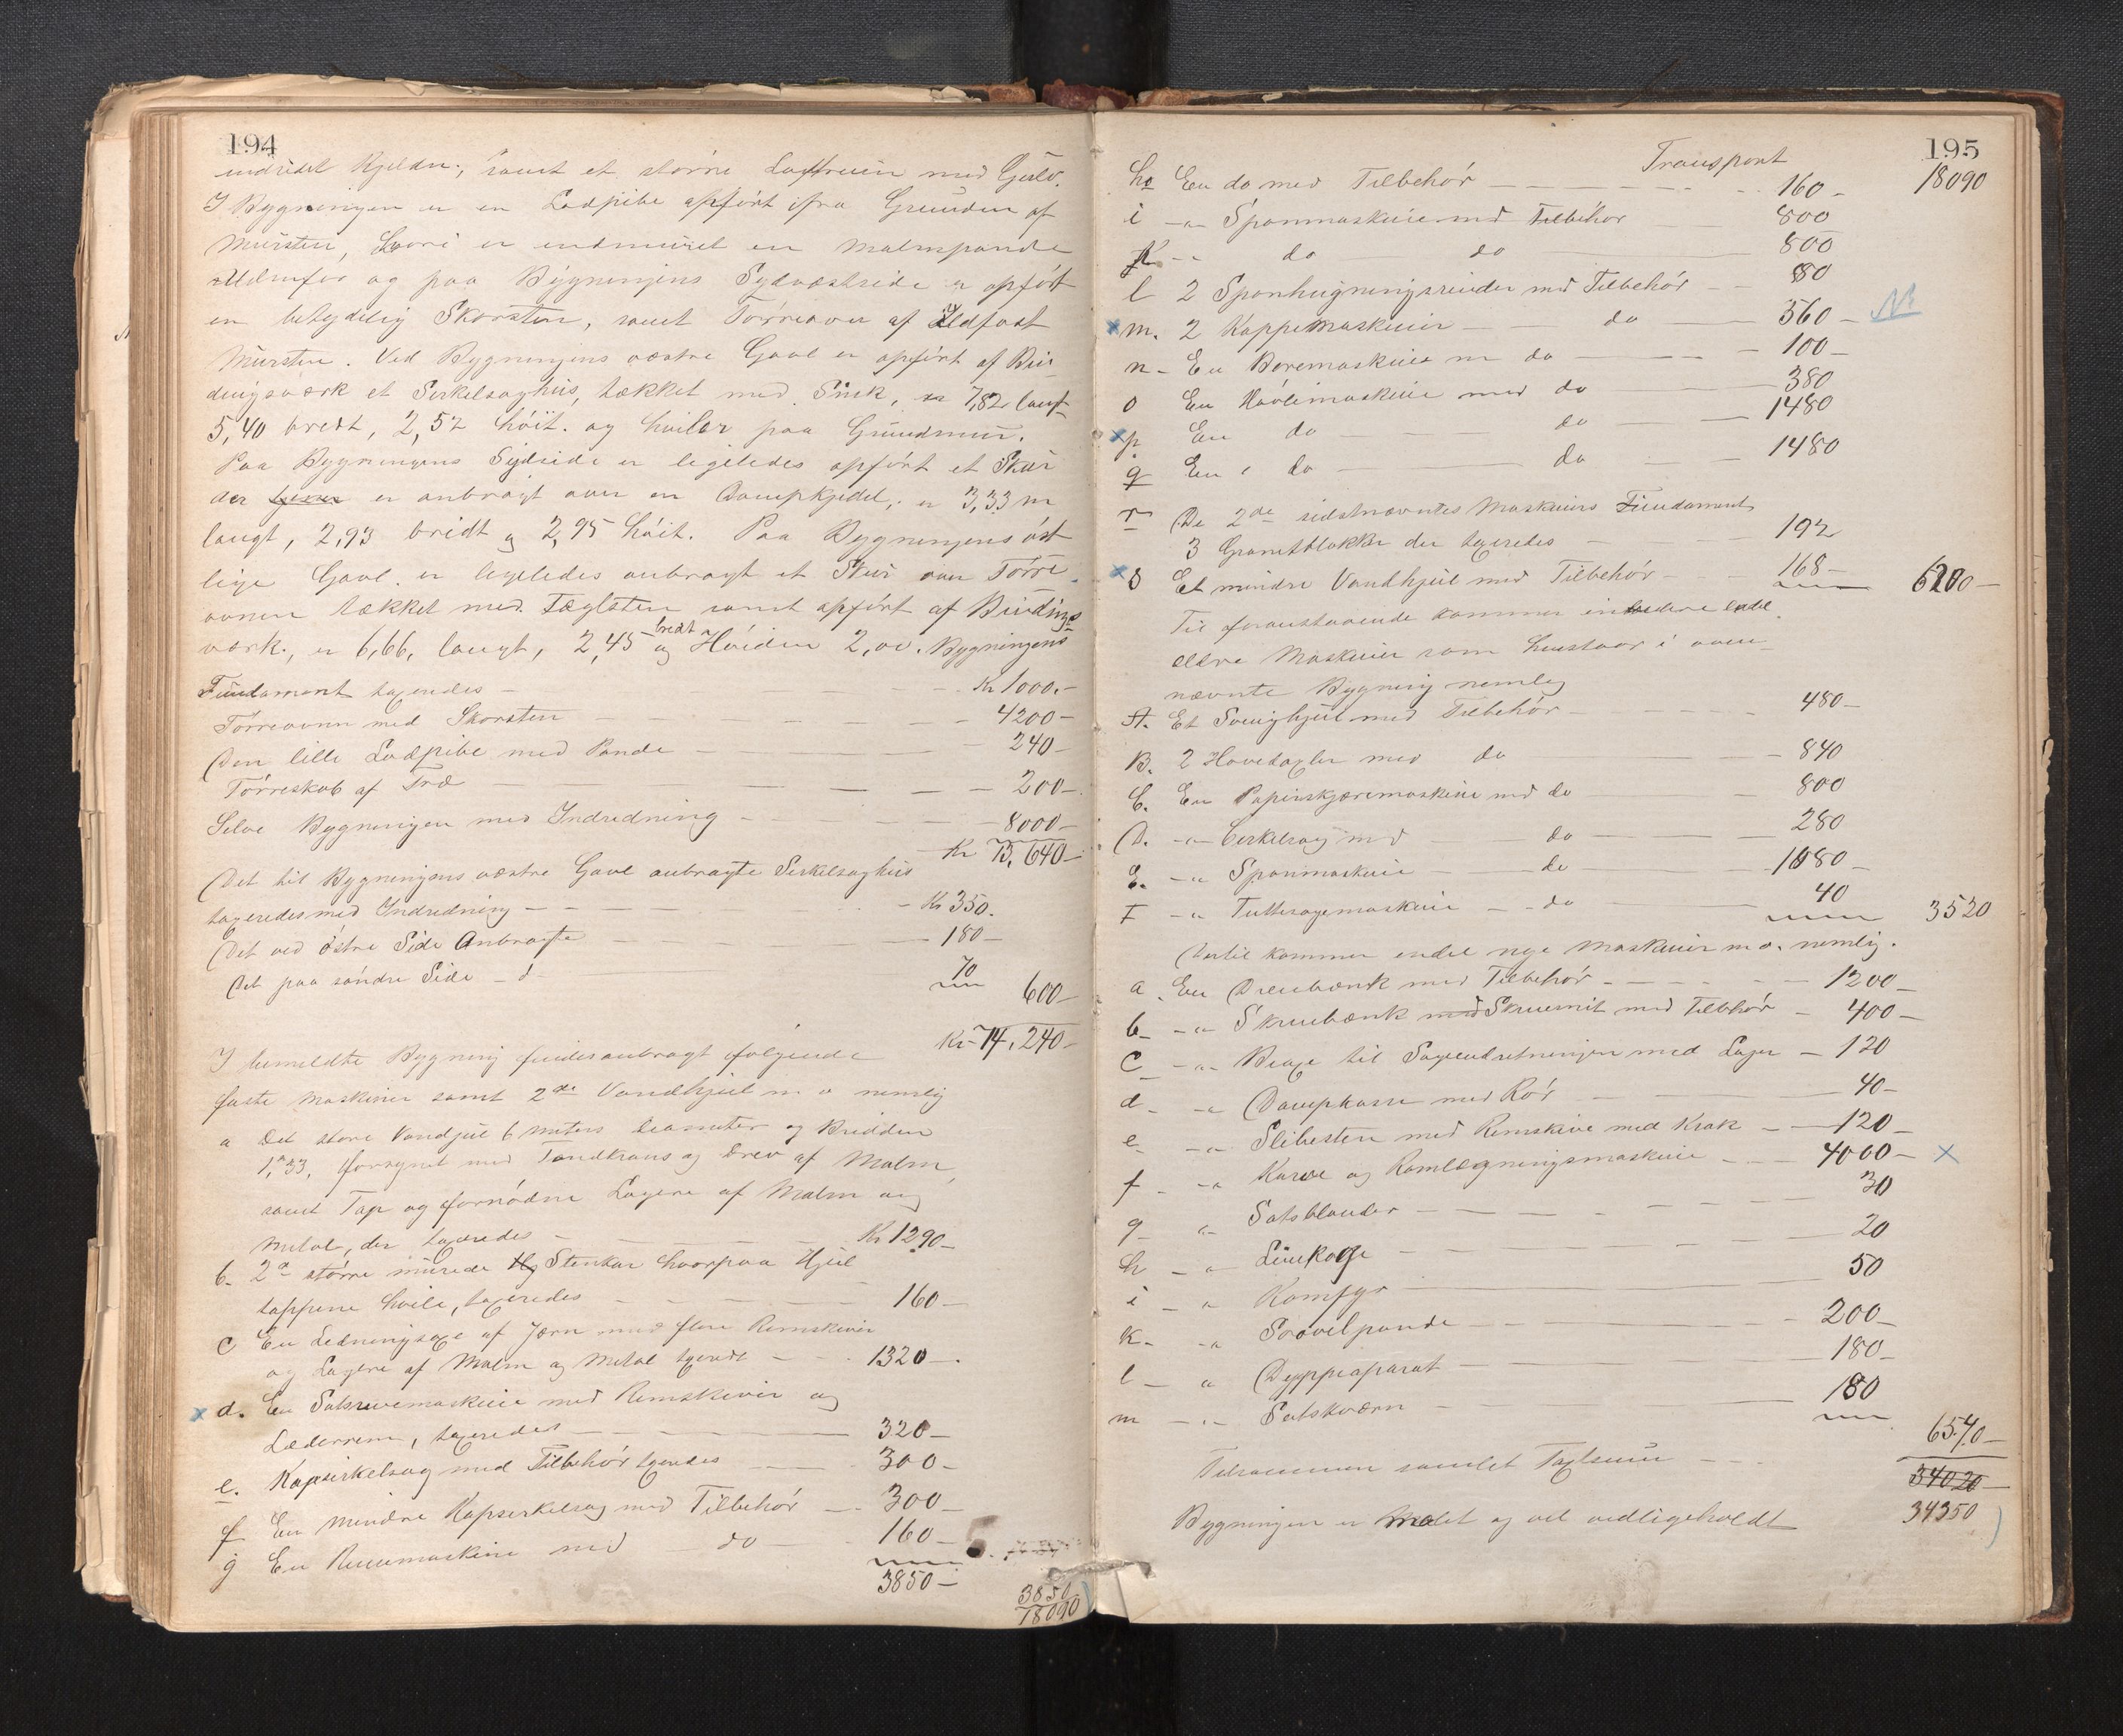 194
indridet Kjelder, samt et større Loftruin med Gulv.
I Bygningen er en Ladpibe opført ifra Grunden af
Mursten, hvori er indmuret en Malmpande
og paa Bygningens Sydvæstside er opført
en betydelig Skorsten, samt Tørreovn af Ildfast
Mursten. Ved Bygningens vestre Gavl er opført af Bin-
dingsværk et Serkelsaghus, tækket med Sink, er 7,82 langt
5,40 bredt, 2,52 höit. og hviler paa Grundmur.
Paa Bygningens Sydside er legeledes opført et Skur
der er anbragt over en Dampkjedel; er 3,33 m
langt, 2,93 bridt og 2,95 höit. Paa Bygningens öst
lige Gavl. er legeledes anbragt et Skur over Törre
ovnen tækket med Tæglsten samt opført af Bindings
værk., er 6,66, langt, 2,45 bredt og Höiden 2,00. Bygningens
Fundament taxeredes — Kr 1000.–
Törreovnen med Skorsten — 4200–
Den lille Ladpibe med Pande — 240–
Törreskab af Træ — 200–
Selve Bygningen med Indredning — 8000–
Kr 13,640–
Det til Bygningens vestre Gavl anbragte Serkelsaghus
taxeredes med Indredning — Kr 350.
Det ved östre Side Anbragte — 180–
Det paa söndre Side – d — 70
600–
Kr 14,240–
I bemeldte Bygning findes anbragt følgende
faste Maskiner samt 2de Vandhjul m v nemlig
a Det store Vandjul 6 Meters Diameter og Bridden
1,m33, forsynet med Tandkrans og Drev af Malm,
samt Tap og fornödne Lagere af Malm og
Metal, der taxeredes — Kr 1290–
b. 2de större murede Stenkar hvorpaa Hjul
tappene hvile, taxeredes — 160–
c En Ledningsaxe af Jærn med flere Remskiver
og Lagere af Malm og Metal taxeredt — 1320–.
x d. En Satsrivemaskine med Remskiver og
Læderrem, taxeredes — 320–
e. Kapserkelsag med Tilbehör taxeredes — 300–
f En mindre Kapserkelsag med Tilbehör — 300–
g En Rivemaskine med do — 160–
3850–
3850
18090
195
Transport 18090
h En do med Tilbehör — 160–
i –"– Sponmaskine med Tilbehör 800
k –" do do 800
l 2 Sponhugningsrinder med Tilbehör — 80
x m. 2 Kappemaskiner — do — 360–
n – En Boremaskine m do — 100–
o En Hövlemaskine med do 380
x p. En do — do — 1480
q En do — do — 1480
r De 2de sidstnævntes Maskiners Fundament
3 Granitblokke der taxeredes — 192
x s Et mindre Vandhjul med Tilbehör — 168– 6200–
Til foranstaaende kommer endvidere endel
eldre Maskiner som henstaar i oven
nævnte Bygning nemleg
A. Et Svinghjul med Tilbehör — 480–
B. 2 Hovedaxler med do — 840
C. En Papirskjæremaskine med do — 800
D. –"– Cerkelsag med — do — 280
E. –"– Sponmaskine — do — 1080–
F –"– Tuttesagemaskine — do — 40 3520
Dertil kommer endel nye Maskiner m v. nemlig.
a En Dreiebænk med Tilbehör — 1200–
b –"– Skruebænk Skruesnit med Tilbehör — 400–
c –"– Beaxe til Sagindretningen med Lager — 120
d –" Dampkasse med Rör — 40–
e –" Slibesten med Remskive med Krak — 120–
f –" Karve og Ramlægningsmaskine — 4000– x
g –" Satsblander — 30
h –" Limkoge — 20
i –" Komfyr — 50
k –" Svovelpande — 200–
l –" Dyppeaparat — 180–
m –" Satskværn — 180
6540–
Tilsammen samlet Taxtsum — 34020–
34350
Bygningen er Malet og vel vedligeholdt